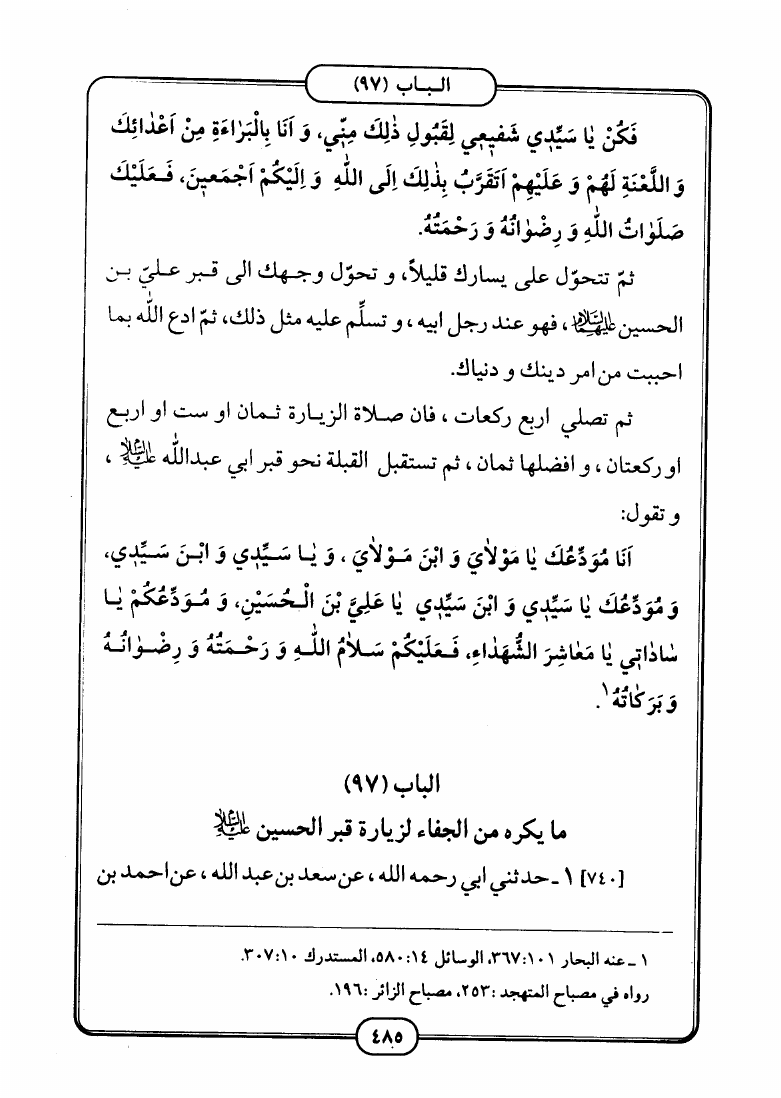 البـاب (٩٧)
فَكُنْ يٰا سَيِّدِي شَفيٖعيٖ لِقَبُولِ ذٰلِكَ مِنّيٖ، وَ اَنَا بِالْبَرٰاءَةِ مِنْ اَعْدٰائِكَ
وَ اللَّعْنَةِ لَهُمْ وَ عَلَيْهِمْ اَتَقَرَّبُ بِذٰلِكَ اِلَى اللّٰهِ وَ اِلَيْكُمْ اَجْمَعيٖنَ، فَـعَلَيْكَ
صَلَوٰاتُ اللّٰهِ وَ رِضْوٰانُهُ وَ رَحْمَتُهُ.
ثمّ تتحوّل على يسارك قليلاً، و تحوّل وجـهك الى قـبر عـليّ بـن
الحسين عليهما السلام، فهو عند رجل ابيه، و تسلِّم عليه مثل ذلك، ثمّ ادع اللّٰه بما
احببت من امر دينك و دنياك.
ثم تصلي اربع ركعات، فان صـلاة الزيـارة ثـمان او ست او اربـع
او ركعتان، و افضلها ثمان، ثم تستقبل القبلة نحو قبر ابي عبداللّٰه عليه السلام،
و تقول:
اَنَا مُوَدِّعُكَ يٰا مَوْلاٰيَ وَ ابْنَ مَـوْلاٰيَ، وَ يٰـا سَـيِّدِي وَ ابْـنَ سَـيِّدِي،
وَ مُوَدِّعُكَ يٰا سَيِّدِي وَ ابْنَ سَيِّدِي يٰا عَلِيَّ بْنَ الْـحُسَيْنِ، وَ مُـوَدِّعُكُمْ يٰـا
سٰادٰاتيٖ يٰا مَعٰاشِرَ الشُّهَدٰاءِ، فَـعَلَيْكُمْ سَـلاٰمُ اللّٰـهِ وَ رَحْـمَتُهُ وَ رِضْـوٰانُـهُ
وَ بَرَكٰاتُهُ ١.
الباب (٩٧)
ما يكره من الجفاء لزيارة قبر الحسين عليه السلام
[٧٤٠] ١ ـ حدثني ابي رحمه الله، عن سعد بن عبد الله، عن احمد بن
١ ـ عنه البحار ١٠١:٣٦٧، الوسائل ١٤:٥٨٠، المستدرك ١٠:٣٠٧.
رواه في مصباح المتهجد: ٢٥٣، مصباح الزائر: ١٩٦.
٤٨٥